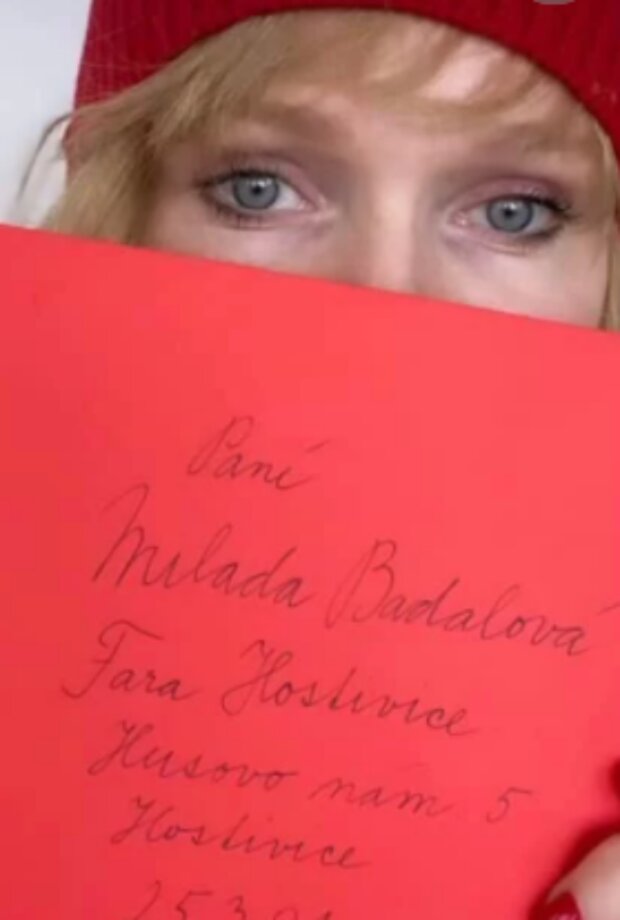 Paní
Milada Badalová
Fara Hostivice
Husovo nám 5
Hostivice
253 01